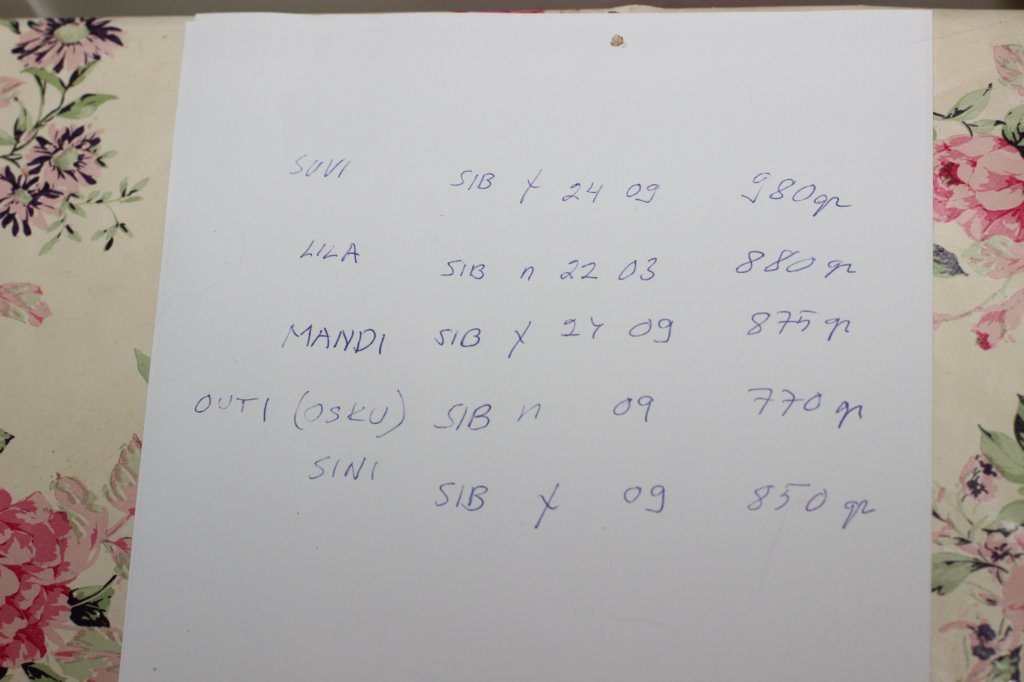 SUVI SIB y 24 09 980 gr
LILA SIB n 22 03 880 gr
MANDI SIB y 24 09 875 gr
OUTI (OSKU) SIB n 09 770 gr
SINI SIB y 09 850 gr